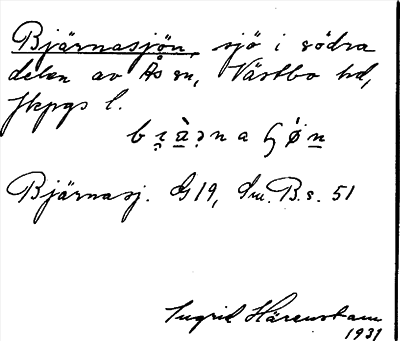 Bjärnasjön, sjö i södra
delen av Ås sn, Västbo hd,
Jkpgs l.
Bjärnasj. G 19, Sm. B. s. 51
Ingrid Härenstam
1931